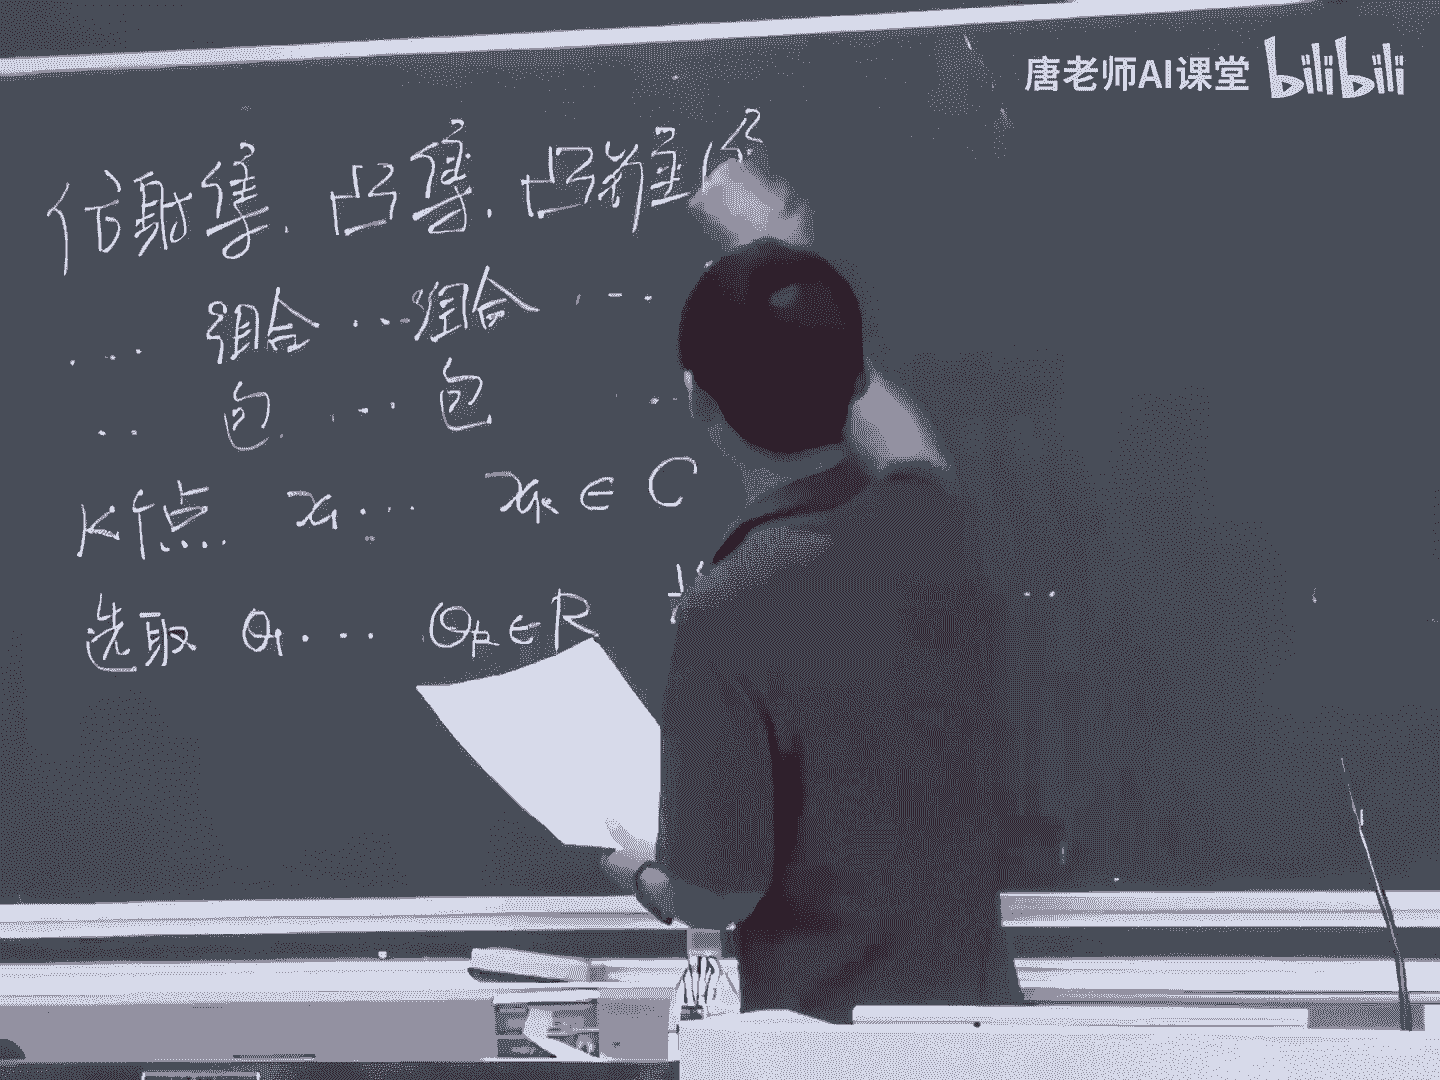 唐老师AI课堂 bilibili
仿射集. 凸集. 凸锥集
... 组合 ... 组合 ...
.. 包 ... 包 ...
K个点. x₁... xₖ ∈ C
选取 θ₁... θₖ ∈ R